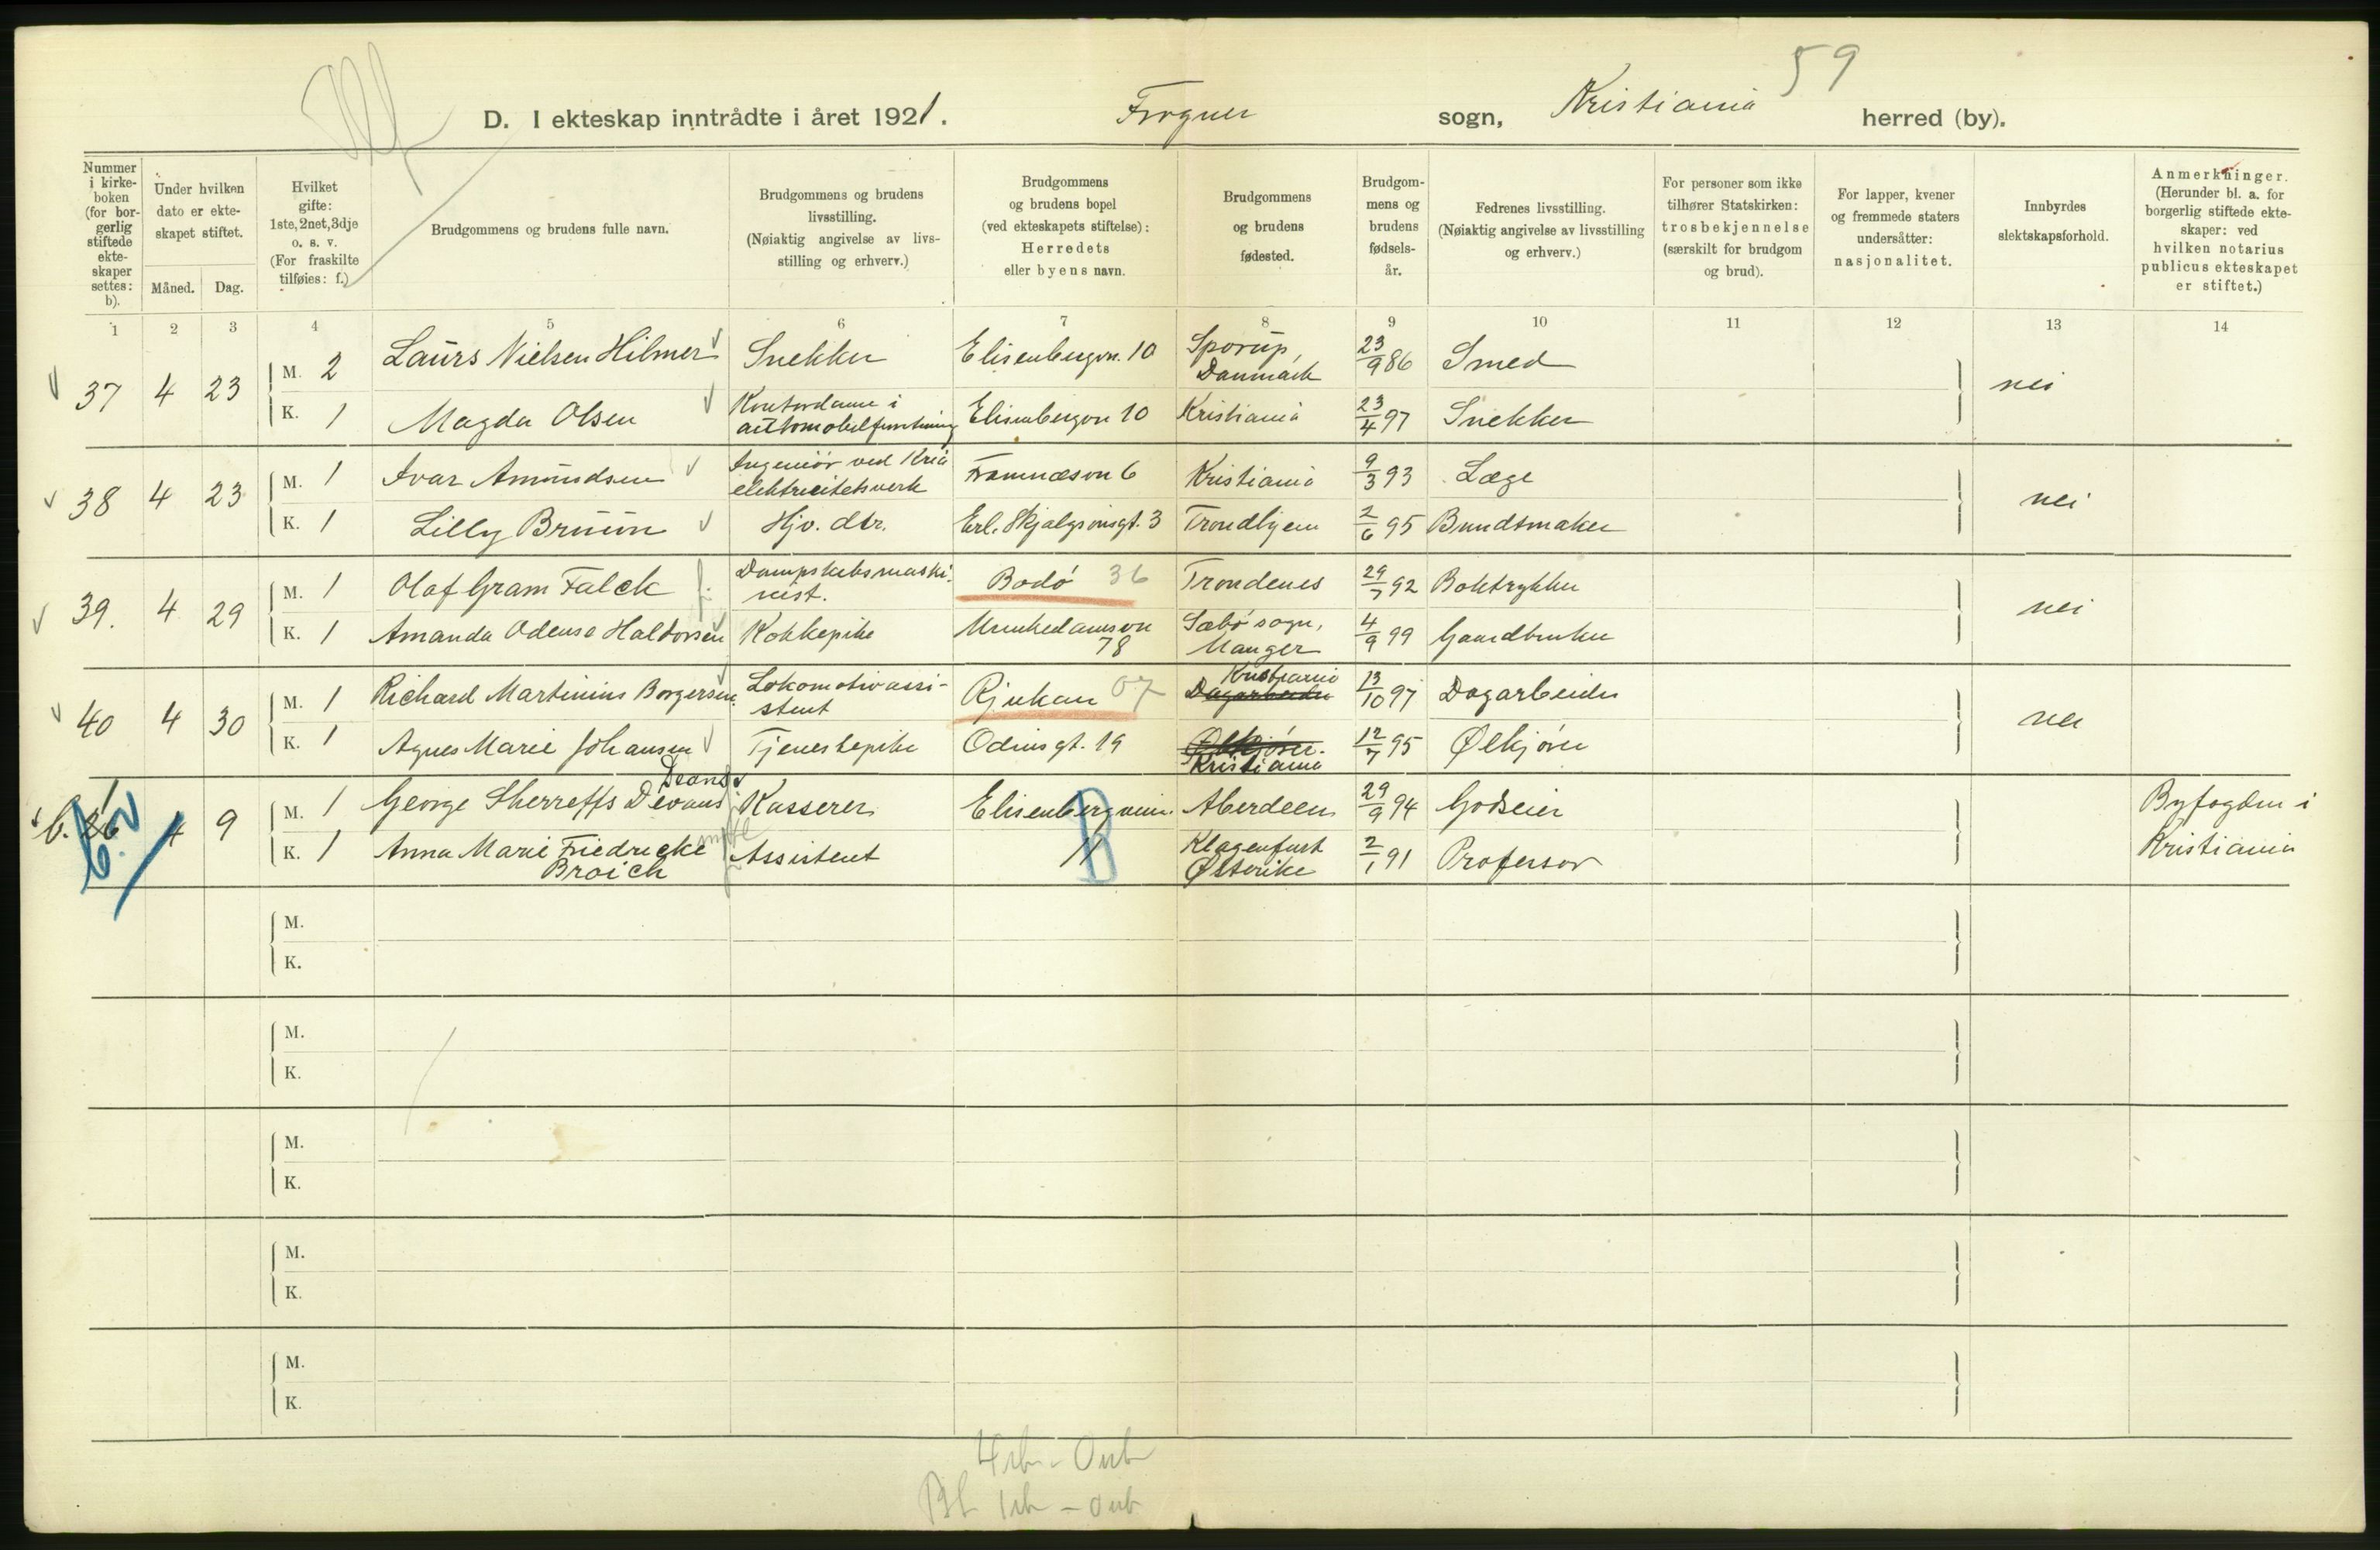 59
D. I ekteskap inntrådte i året 1921. Frogner sogn, Kristiania herred (by).
Nummer i kirke-boken (for bor-gerlig stiftede ekte-skaper settes: b).
Under hvilken dato er ekte-skapet stiftet.
Måned. Dag.
Hvilket gifte: 1ste, 2net, 3dje o. s. v. (For fraskilte tilføies: f.)
Brudgommens og brudens fulle navn.
Brudgommens og brudens livsstilling. (Nøiaktig angivelse av livs-stilling og erhverv.)
Brudgommens og brudens bopel (ved ekteskapets stiftelse): Herredets eller byens navn.
Brudgommens og brudens fødested.
Brudgom-mens og brudens fødsels-år.
Fedrenes livsstilling. (Nøiaktig angivelse av livsstilling og erhverv.)
For personer som ikke tilhører Statskirken: trosbekjennelse (særskilt for brudgom og brud).
For lapper, kvener og fremmede staters undersåtter: nasjonalitet.
Innbyrdes slektskapsforhold.
Anmerkninger. (Herunder bl. a. for borgerlig stiftede ekte-skaper: ved hvilken notarius publicus ekteskapet er stiftet.)
1 2 3 4 5 6 7 8 9 10 11 12 13 14
37 4 23 M. 2 Laurs Nielsen Hilmer Snekker Elisenbergvn. 10 Sporup, Danmark 23/9 86 Smed nei
K. 1 Magda Olsen Kontordame i automobilforretning Elisenbergvn 10 Kristiania 23/4 97 Snekker
38 4 23 M. 1 Ivar Amundsen Ingeniör ved Kria elektricitetsverk Framnæsvn 6 Kristiania 9/3 93 Læge nei
K. 1 Lilly Bruun Hjv. dtr. Erl. Skjalgsönsgt. 3 Trondhjem 2/6 95 Bundtmaker
39. 4 29 M. 1 Olaf Gram Falck Dampskibsmaskinist. Bodö 36 Trondenes 29/7 92 Boktrykker nei
K. 1 Amanda Odense Haldorsen Kokkepike Munkedamsvn 78 Sæbö sogn, Manger 4/9 99 Gaardbruker
40 4 30 M. 1 Richard Martinius Borgersen Lokomotivassistent Rjukan 07 Kristiania Dagarbeider 13/10 97 Dagarbeider nei
K. 1 Agnes Marie Johansen Tjenestepike Odinsgt. 19 Ølkjører. Kristiania 12/7 95 Ølkjører
b. 26 4 9 M. 1 George Sherreffs Devans Deans Kasserer Elisenbergveien Aberdeen 29/9 94 Godseier Byfogden i
K. 1 Anna Marie Friedricke Broich Assistent 11 B Klagenfurt Østerike 2/1 91 Professor Kristiania
M.
K.
M.
K.
M.
K.
M.
K.
M.
K.